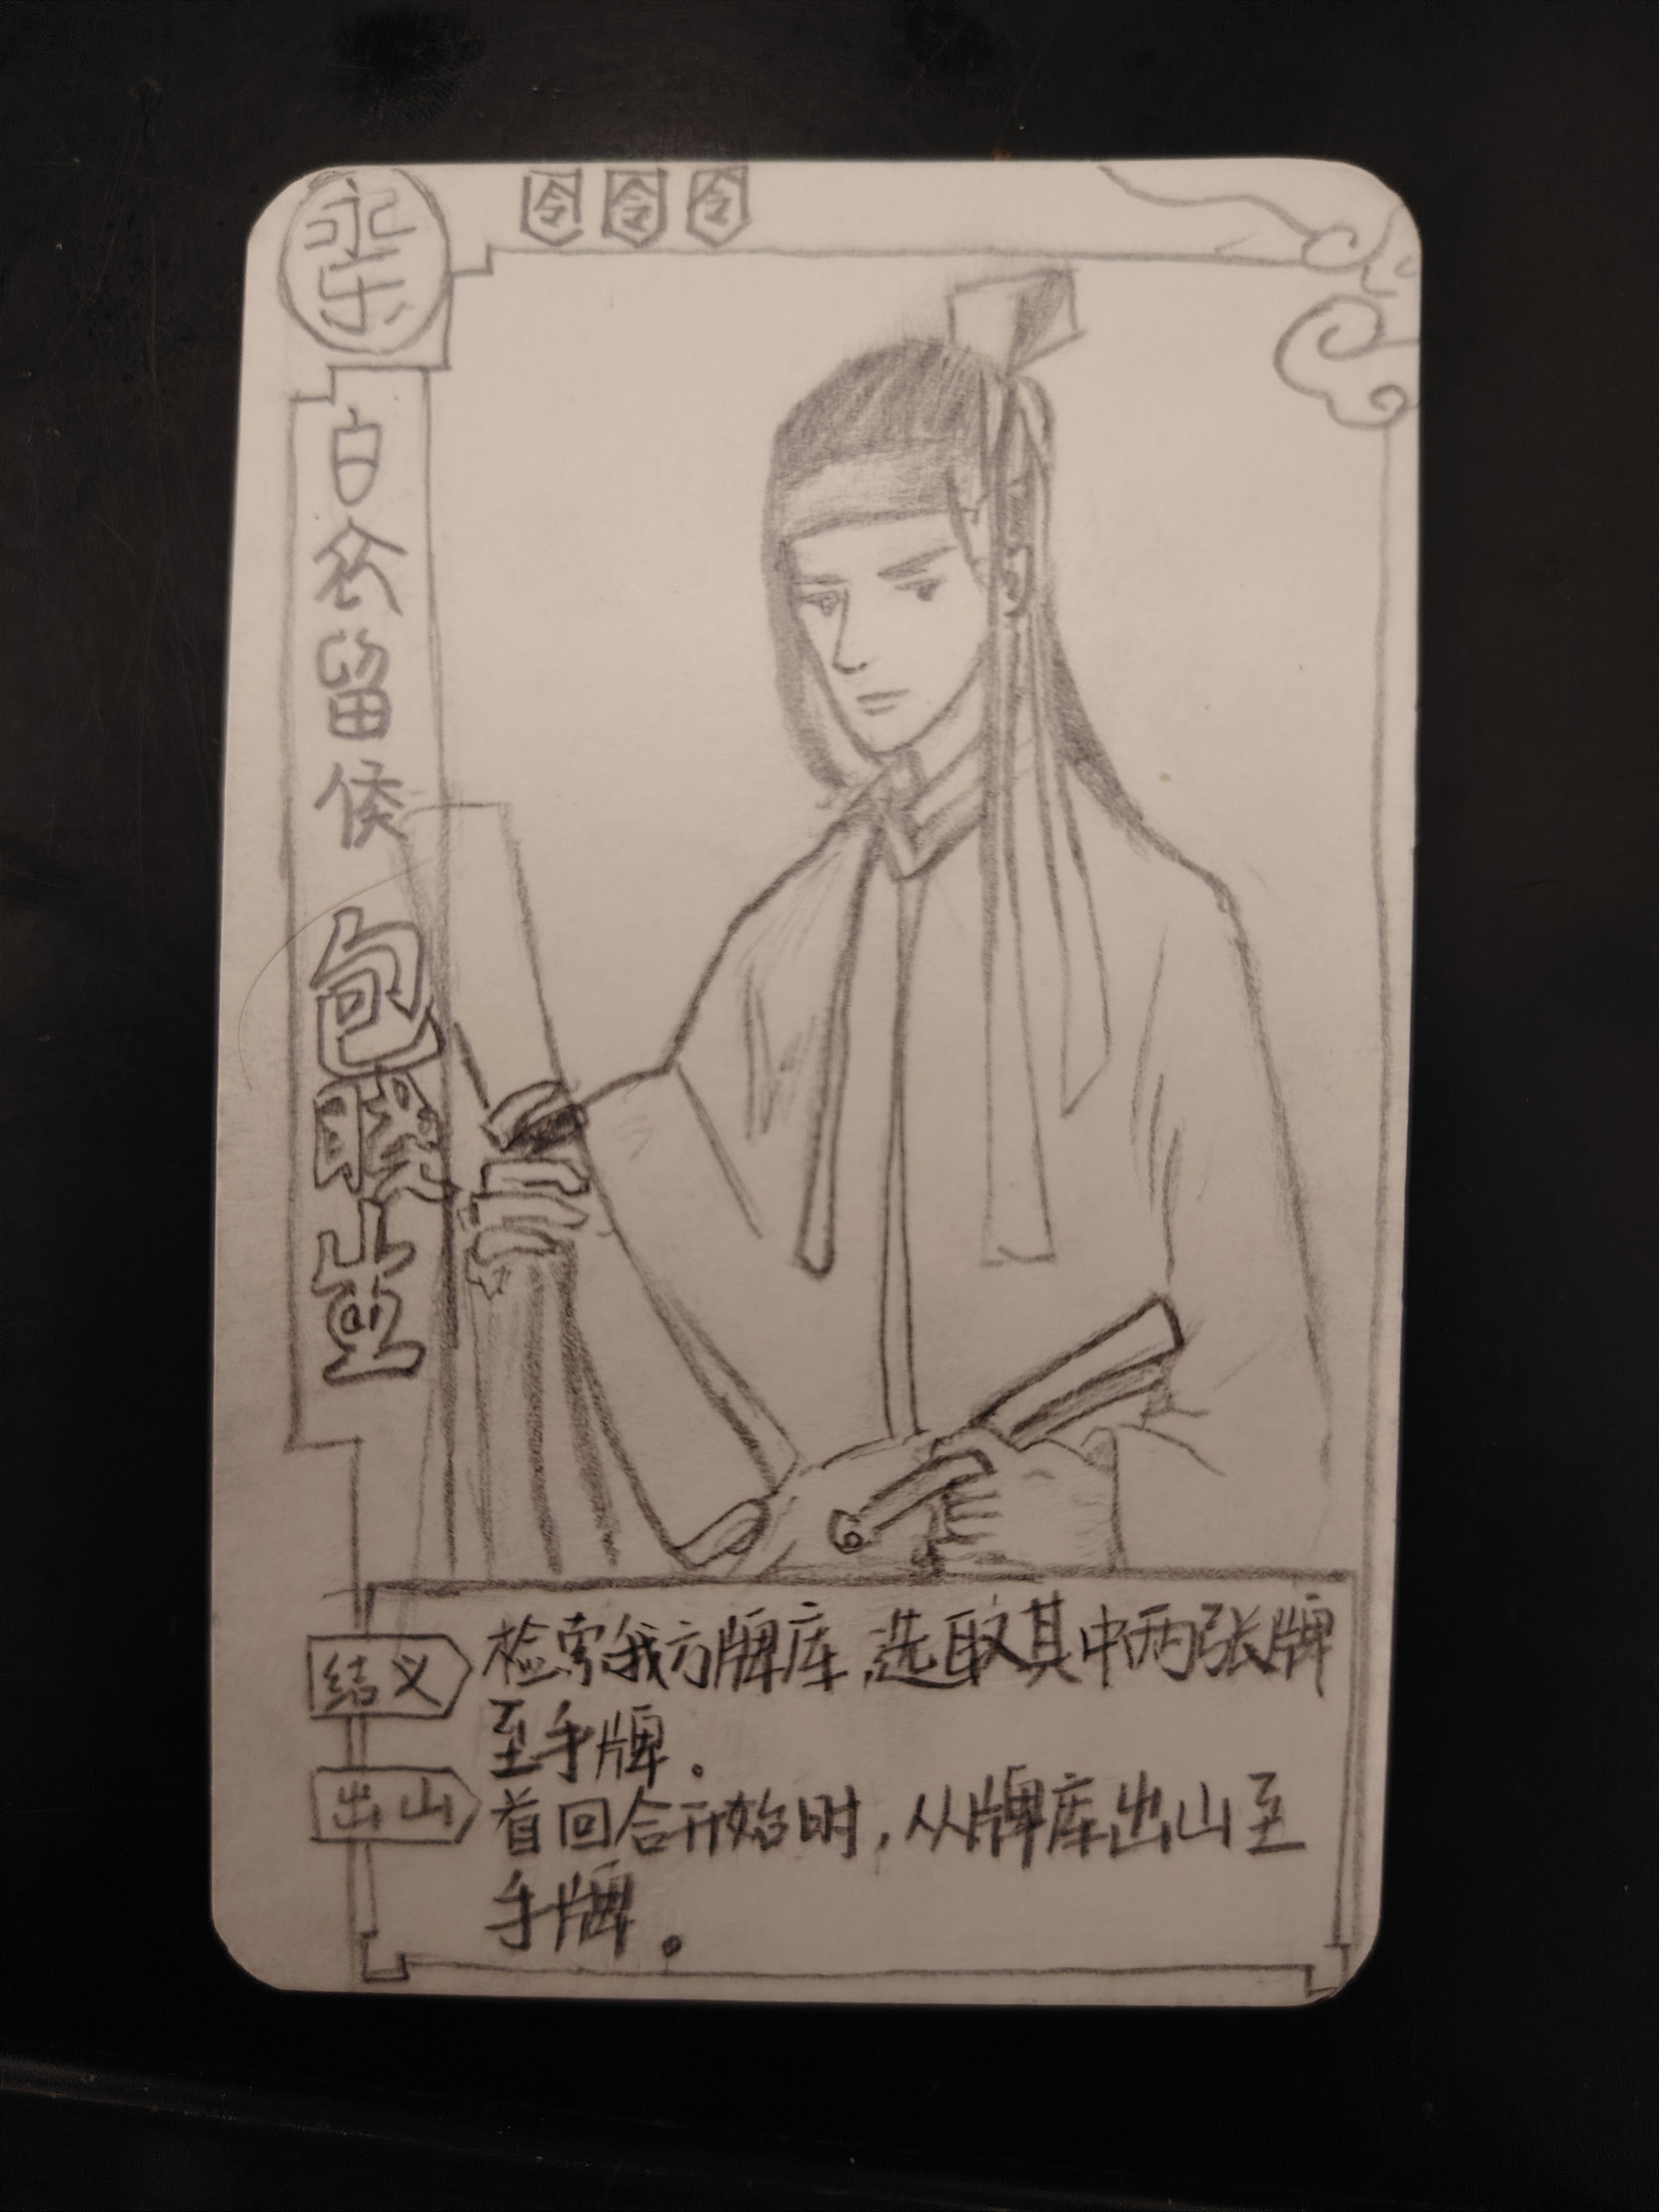 永乐
令 令 令
白衣留侯
包
结义
检索我方牌库,选取其中两张牌
至手牌.
出山
首回合开始时,从牌库出山至
手牌.